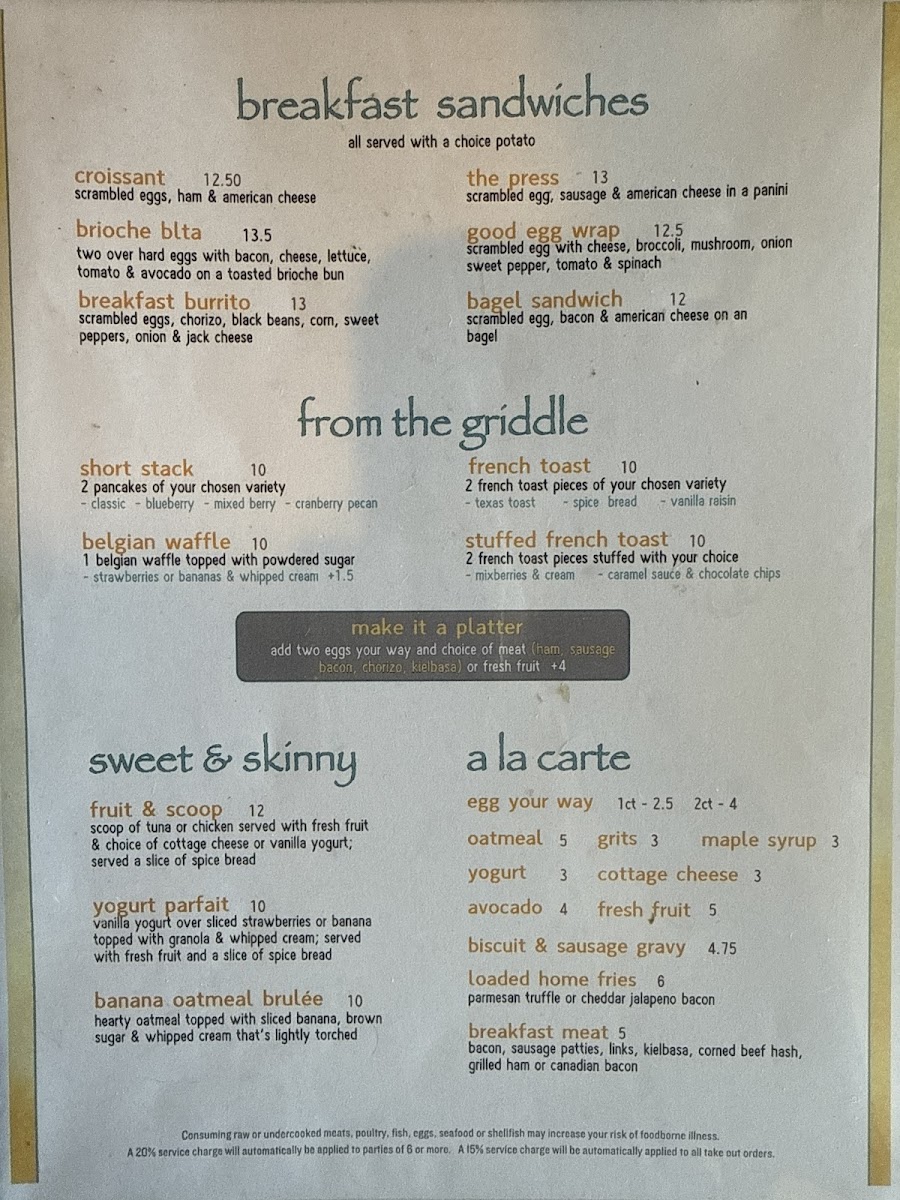 breakfast sandwiches
all served with a choice potato
croissant 12.50
scrambled eggs, ham & american cheese
brioche blta 13.5
two over hard eggs with bacon, cheese, lettuce,
tomato & avocado on a toasted brioche bun
breakfast burrito 13
scrambled eggs, chorizo, black beans, corn, sweet
peppers, onion & jack cheese
the press 13
scrambled egg, sausage & american cheese in a panini
good egg wrap 12.5
scrambled egg with cheese, broccoli, mushroom, onion
sweet pepper, tomato & spinach
bagel sandwich 12
scrambled egg, bacon & american cheese on an
bagel
from the griddle
short stack 10
2 pancakes of your chosen variety
- classic - blueberry - mixed berry - cranberry pecan
belgian waffle 10
1 belgian waffle topped with powdered sugar
- strawberries or bananas & whipped cream +1.5
french toast 10
2 french toast pieces of your chosen variety
- texas toast - spice bread - vanilla raisin
stuffed french toast 10
2 french toast pieces stuffed with your choice
- mixberries & cream - caramel sauce & chocolate chips
make it a platter
add two eggs your way and choice of meat (ham, sausage
bacon, chorizo, kielbasa) or fresh fruit +4
sweet & skinny
fruit & scoop 12
scoop of tuna or chicken served with fresh fruit
& choice of cottage cheese or vanilla yogurt;
served a slice of spice bread
yogurt parfait 10
vanilla yogurt over sliced strawberries or banana
topped with granola & whipped cream; served
with fresh fruit and a slice of spice bread
banana oatmeal brulée 10
hearty oatmeal topped with sliced banana, brown
sugar & whipped cream that's lightly torched
a la carte
egg your way 1ct - 2.5 2ct - 4
oatmeal 5 grits 3 maple syrup 3
yogurt 3 cottage cheese 3
avocado 4 fresh fruit 5
biscuit & sausage gravy 4.75
loaded home fries 6
parmesan truffle or cheddar jalapeno bacon
breakfast meat 5
bacon, sausage patties, links, kielbasa, corned beef hash,
grilled ham or canadian bacon
Consuming raw or undercooked meats, poultry, fish, eggs, seafood or shellfish may increase your risk of foodborne illness.
A 20% service charge will automatically be applied to parties of 6 or more. A 15% service charge will be automatically applied to all take out orders.